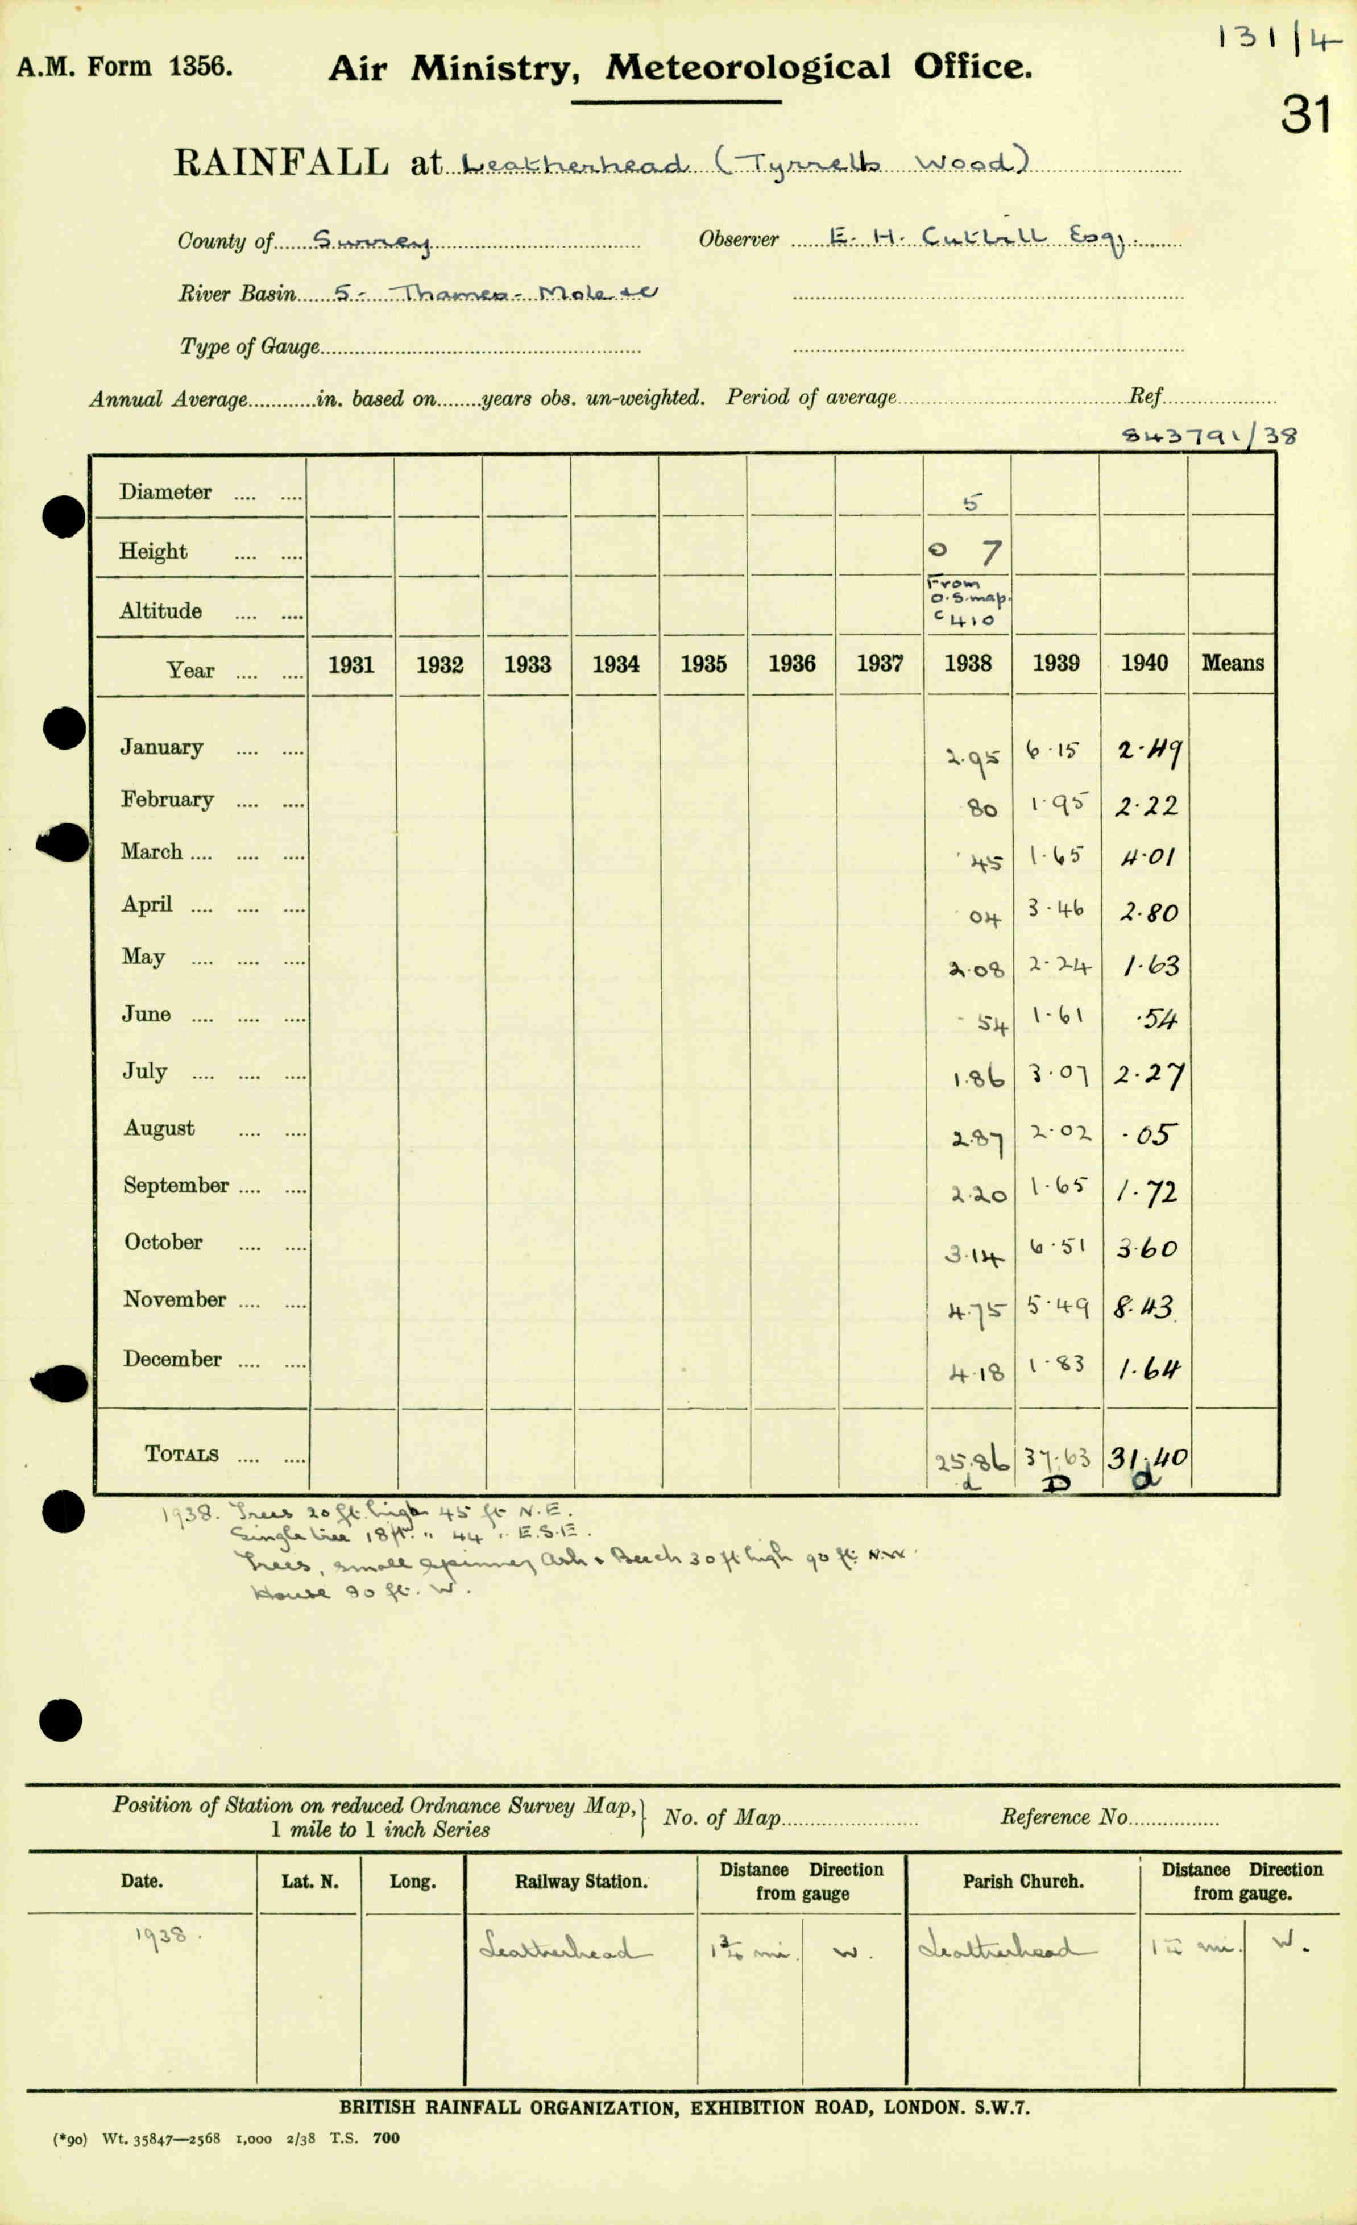 131/4
A.M. Form 1356. Air Ministry, Meteorological Office.
31
RAINFALL at Leatherhead (Tyrrells Wood)
County of Surrey Observer E. H. Cuthill Esq.
River Basin 5 - Thames - Mole &c
Type of Gauge
Annual Average in. based on years obs. un-weighted. Period of average Ref.
843791/38
Diameter 5
Height 0 7
Altitude From O.S. map. c 410
Year 1931 1932 1933 1934 1935 1936 1937 1938 1939 1940 Means
January 2.95 6.15 2.49
February .80 1.95 2.22
March .45 1.65 4.01
April .04 3.46 2.80
May 2.08 2.24 1.63
June .54 1.61 .54
July 1.86 3.07 2.27
August 2.87 2.02 .05
September 2.20 1.65 1.72
October 3.14 6.51 3.60
November 4.75 5.49 8.43
December 4.18 1.83 1.64
TOTALS 25.86 37.63 31.40
d D d
1938. Trees 20 ft. high 45 ft N.E.
Single tree 18 ft. " 44 " E.S.E.
Trees, small spinney Ash & Beech 30 ft high 90 ft. N.W.
House 90 ft. W.
Position of Station on reduced Ordnance Survey Map, 1 mile to 1 inch Series } No. of Map Reference No.
Date. Lat. N. Long. Railway Station. Distance Direction from gauge Parish Church. Distance Direction from gauge.
1938. Leatherhead 1¾ mi. W. Leatherhead 1¼ mi. W.
BRITISH RAINFALL ORGANIZATION, EXHIBITION ROAD, LONDON. S.W.7.
(*90) Wt. 35847—2568 1,000 2/38 T.S. 700